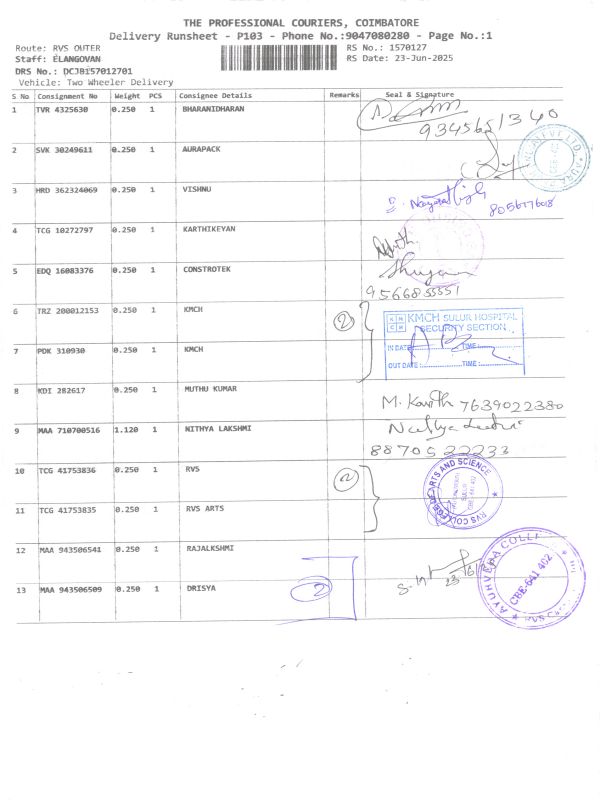 THE PROFESSIONAL COURIERS, COIMBATORE
Delivery Runsheet - P103 - Phone No.:9047080280 - Page No.:1
Route: RVS OUTER
RS No.: 1570127
Staff: ELANGOVAN
RS Date: 23-Jun-2025
DRS No.: DCJB157012701
Vehicle: Two Wheeler Delivery
S No Consignment No Weight PCS Consignee Details Remarks Seal & Signature
1 TVR 4325630 0.250 1 BHARANIDHARAN
9345651340
2 SVK 30249611 0.250 1 AURAPACK
3 HRD 362324069 0.250 1 VISHNU
8056177608
4 TCG 10272797 0.250 1 KARTHIKEYAN
5 EDQ 16083376 0.250 1 CONSTROTEK
9566855551
6 TRZ 200012153 0.250 1 KMCH 2
KMCH SULUR HOSPITAL
SECURITY SECTION
IN DATE: TIME:
OUT DATE: TIME:
7 PDK 310930 0.250 1 KMCH
8 KDI 282617 0.250 1 MUTHU KUMAR
M. Kavith 7639022380
9 MAA 710700516 1.120 1 NITHYA LAKSHMI
8870522233
10 TCG 41753836 0.250 1 RVS 2
RVS COLLEGE OF ARTS AND SCIENCE
SULUR
11 TCG 41753835 0.250 1 RVS ARTS
12 MAA 943506541 0.250 1 RAJALKSHMI
13 MAA 943506509 0.250 1 DRISYA 2
CBE-641 402